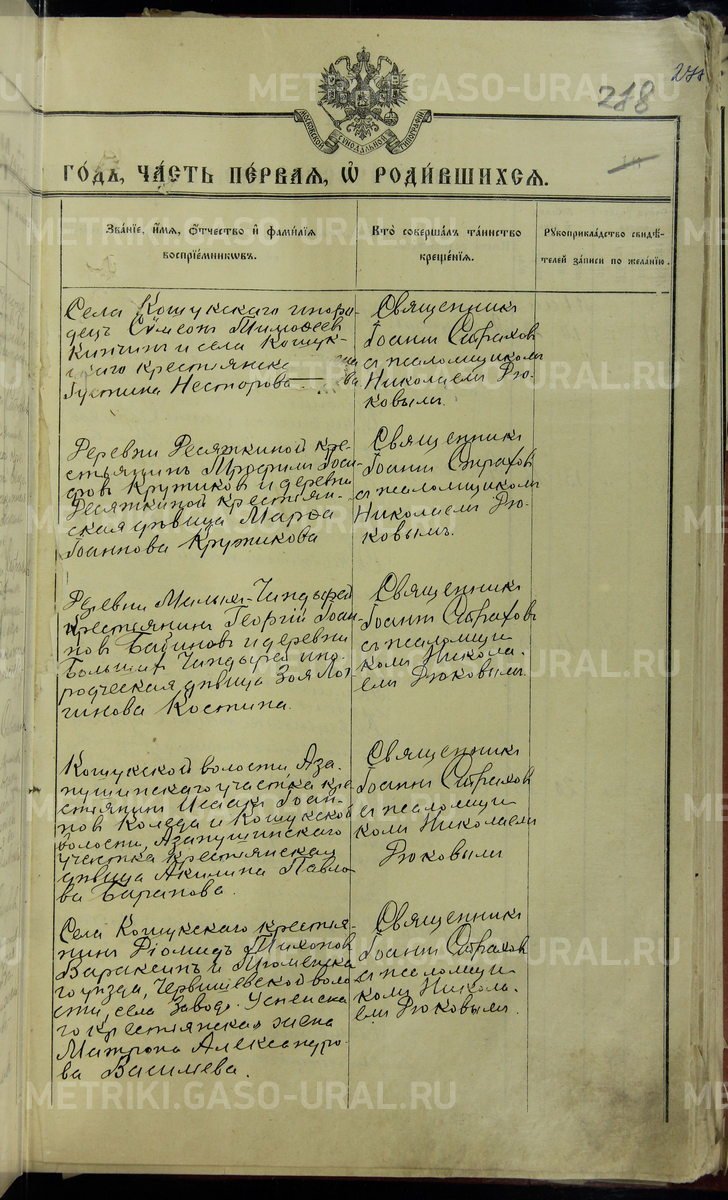 218
МОСКОВСКОЙ СѴНОДАЛЬНОЙ ТИПОГРАФІИ
ГО́ДЪ, ЧА́СТЬ ПЕ́РВАЯ, Ѡ҆ РОДИ́ВШИХСЯ.
Зва́нїе, и҆́мя, ѻ҆́тчество и҆ фами́лїя
воспрїе́мниковъ.
Кто̀ соверша́лъ та́инство
креще́нїя.
Рꙋкоприкла́дство свидѣ́-
телей за́писи по жела́нїю.
Села Кошукскаго инорο-
децъ Сѵмеонъ Тимоѳеев
Кинчинъ и села Кошук-
скаго крестьянска
Іустина Несторова
Священникъ
Іоаннъ Страхов
съ псаломщикомъ
Николаемъ Рю-
ковымъ.
Деревни Десяткиной кре-
стьянинъ Трофимъ Іоси-
фовъ Кружиковъ и деревни
Десяткиной крестьян-
ская дѣвица Марѳа
Іоаннова Кружикова
Священникъ
Іоаннъ Страхов
съ псаломщикомъ
Николаемъ Рю-
ковымъ.
Деревни Малыя-Чандыри
крестьянинъ Георгій Іоан-
новъ Бабиновъ и деревни
Большія Чандыри ино-
родческая дѣвица Зоя Лон-
гинова Костина.
Священникъ
Іоаннъ Страховъ
съ псаломщи-
комъ Никола-
емъ Рюковымъ.
Кошукской волости, Аза-
пушинскаго участка кре-
стьянинъ Исаакъ Іоан-
новъ Коляда и Кошукской
волости, Азапушинскаго
участка крестьянская
дѣвица Акилина Павло-
ва Баранова.
Священникъ
Іоаннъ Страхов
съ псаломщи-
комъ Николаемъ
Рюковымъ
Села Кошукскаго крестья-
нинъ Діомидъ Тихонов
Вараксинъ и Тюменска-
го уѣзда, Червишевской воло-
сти, села Завод. Успенска-
го крестьянская жена
Матрона Александро-
ва Васильева.
Священникъ
Іоаннъ Страхов
съ псаломщи-
комъ Никола-
емъ Рюковымъ.
METRIKI.GASO-URAL.RU